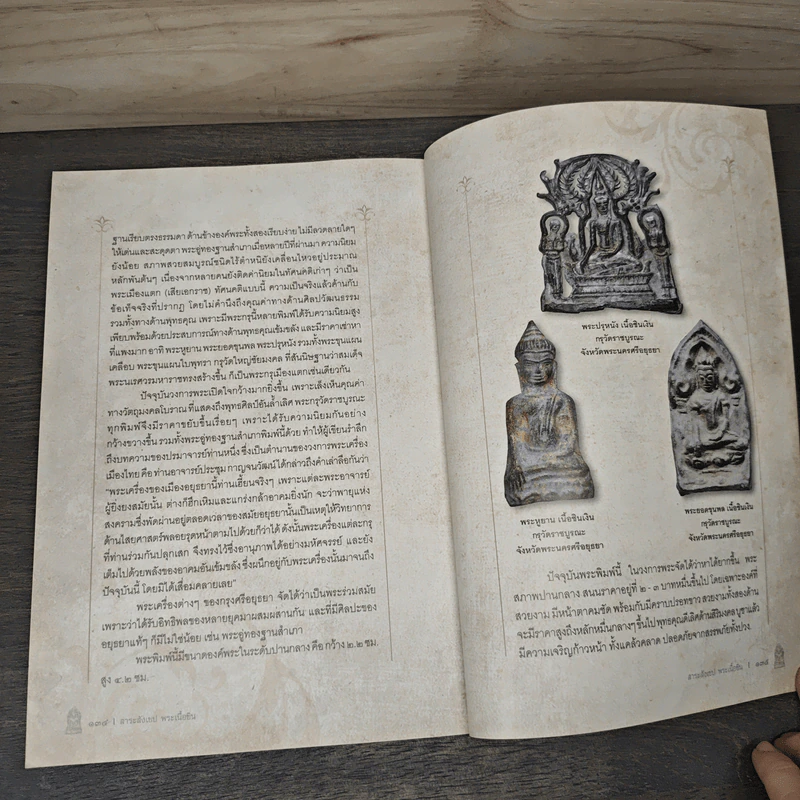 ฐานเรียบตรงธรรมดา ด้านข้างองค์พระทั้งสองเรียบง่าย ไม่มีลวดลายใดๆ
ให้เด่นและสะดุดตา พระอู่ทองฐานสำเภาเมื่อหลายปีที่ผ่านมา ความนิยม
ยังน้อย สภาพสวยสมบูรณ์ชนิดไร้ตำหนิยังเคลื่อนไหวอยู่ประมาณ
หลักพันต้นๆ เนื่องจากหลายคนยังติดค่านิยมในทัศนคติเก่าๆ ว่าเป็น
พระเมืองแตก (เสียเอกราช) ทัศนคติแบบนี้ ความเป็นจริงแล้วค้านกับ
ข้อเท็จจริงที่ปรากฏ โดยไม่คำนึงถึงคุณค่าทางด้านศิลปวัฒนธรรม
รวมทั้งทางด้านพุทธคุณ เพราะมีพระกรุนี้หลายพิมพ์ได้รับความนิยมสูง
เพียบพร้อมด้วยประสบการณ์ทางด้านพุทธคุณเข้มขลัง และมีราคาเช่าหา
ที่แพงมาก อาทิ พระหูยาน พระยอดขุนพล พระปรุหนัง รวมทั้งพระขุนแผน
เคลือบ พระขุนแผนใบพุทรา กรุวัดใหญ่ชัยมงคล ที่สันนิษฐานว่าสมเด็จ
พระนเรศวรมหาราชทรงสร้างขึ้น ก็เป็นพระกรุเมืองแตกเช่นเดียวกัน
ปัจจุบันวงการพระเปิดใจกว้างมากยิ่งขึ้น เพราะเล็งเห็นคุณค่า
ทางวัตถุมงคลโบราณ ที่แสดงถึงพุทธศิลป์อันล้ำเลิศ พระกรุวัดราชบูรณะ
ทุกพิมพ์จึงมีราคาขยับขึ้นเรื่อยๆ เพราะได้รับความนิยมกันอย่าง
กว้างขวางขึ้น รวมทั้งพระอู่ทองฐานสำเภาพิมพ์นี้ด้วย ทำให้ผู้เขียนรำลึก
ถึงบทความของปรมาจารย์ท่านหนึ่ง ซึ่งเป็นตำนานของวงการพระเครื่อง
เมืองไทย คือ ท่านอาจารย์ประชุม กาญจนวัฒน์ได้กล่าวถึงคำเล่าลือกันว่า
“พระเครื่องของเมืองอยุธยานี้ท่านเฮี้ยนจริงๆ เพราะแต่ละพระอาจารย์
ผู้ยิ่งยงสมัยนั้น ต่างก็ฮึกเหิมและแกร่งกล้าอาคมยิ่งนัก จะว่าพายุแห่ง
สงครามซึ่งพัดผ่านอยู่ตลอดเวลาของสมัยอยุธยานั้นเป็นเหตุให้วิทยาการ
ด้านไสยศาสตร์พลอยรุดหน้าตามไปด้วยก็ว่าได้ ดังนั้นพระเครื่องแต่ละกรุ
ที่ท่านร่วมกันปลุกเสก จึงทรงไว้ซึ่งอานุภาพได้อย่างมหัศจรรย์ และยัง
เต็มไปด้วยพลังของอาคมอันเข้มขลัง ซึ่งผนึกอยู่กับพระเครื่องนั้นมาจนถึง
ปัจจุบันนี้ โดยมิได้เสื่อมคลายเลย”
พระเครื่องต่างๆ ของกรุงศรีอยุธยา จัดได้ว่าเป็นพระร่วมสมัย
เพราะว่าได้รับอิทธิพลของหลายยุคมาผสมผสานกัน และที่มีศิลปะของ
อยุธยาแท้ๆ ก็มีไม่ใช่น้อย เช่น พระอู่ทองฐานสำเภา
พระพิมพ์นี้มีขนาดองค์พระในระดับปานกลาง คือ กว้าง ๒.๒ ซม.
สูง ๔.๒ ซม.
๑๓๔ | สาระสังเขป พระเนื้อชิน
พระปรุหนัง เนื้อชินเงิน
กรุวัดราชบูรณะ
จังหวัดพระนครศรีอยุธยา
พระหูยาน เนื้อชินเงิน
กรุวัดราชบูรณะ
จังหวัดพระนครศรีอยุธยา
พระยอดขุนพล เนื้อชินเงิน
กรุวัดราชบูรณะ
จังหวัดพระนครศรีอยุธยา
ปัจจุบันพระพิมพ์นี้ ในวงการพระจัดได้ว่าหาได้ยากขึ้น พระ
สภาพปานกลาง สนนราคาอยู่ที่ ๒ - ๓ บาทหมื่นขึ้นไป โดยเฉพาะองค์ที่
สวยงาม มีหน้าตาคมชัด พร้อมกับมีคราบปรอทขาว สวยงามทั้งสองด้าน
จะมีราคาสูงถึงหลักหมื่นกลางๆ ขึ้นไป พุทธคุณดีเลิศด้านสิริมงคล บูชาแล้ว
มีความเจริญก้าวหน้า ทั้งแคล้วคลาด ปลอดภัยจากสรรพภัยทั้งปวง
สาระสังเขป พระเนื้อชิน | ๑๓๕